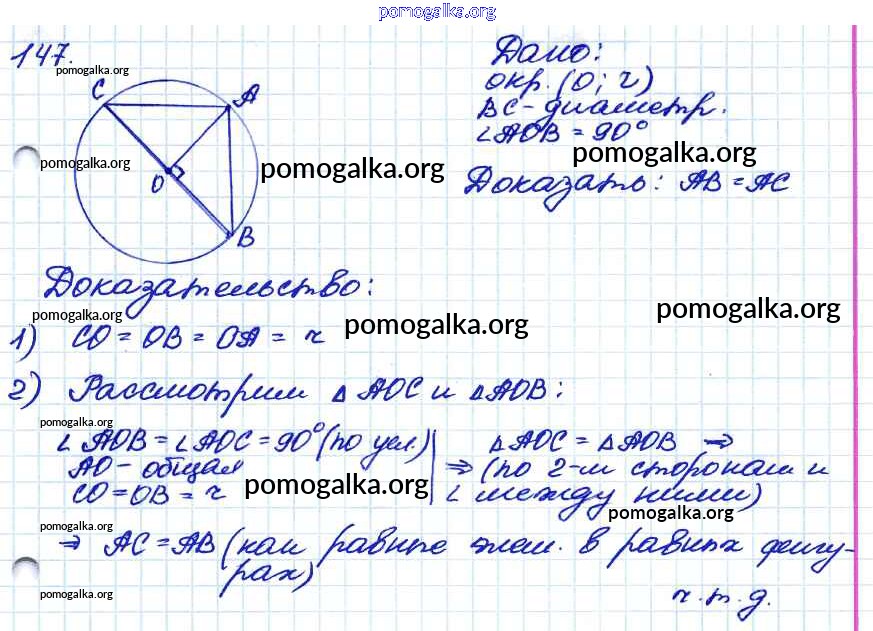 pomogalka.org
147.
pomogalka.org
C
A
O
B
pomogalka.org
pomogalka.org
Дано:
окр. (O; r)
BC - диаметр.
∠AOB = 90°
pomogalka.org
Доказать: AB = AC
Доказательство:
pomogalka.org
pomogalka.org
pomogalka.org
1) CO = OB = OA = r
2) Рассмотрим △ AOC и △AOB:
pomogalka.org
∠ AOB = ∠ AOC = 90° (по усл.)
AO - общая
CO = OB = r
pomogalka.org
△AOC = △AOB ⇒
⇒ (по 2-м сторонам и
∠ между ними)
pomogalka.org
pomogalka.org
⇒ AC = AB (как равные элем. в равных фигу-
рах)
pomogalka.org
ч.т.д.